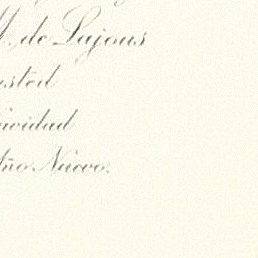 M. de Lajous
usted
avidad
Año Nuevo.